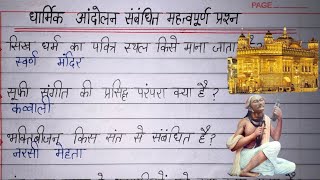 PAGE
धार्मिक आंदोलन संबंधित महत्वपूर्ण प्रश्न
सिख धर्म का पवित्र स्थल किसे माना जाता है?
स्वर्ण मंदिर
सूफी संगीत की प्रसिद्ध परंपरा क्या है?
कव्वाली
किस संत से संबंधित है?
नरसी मेहता